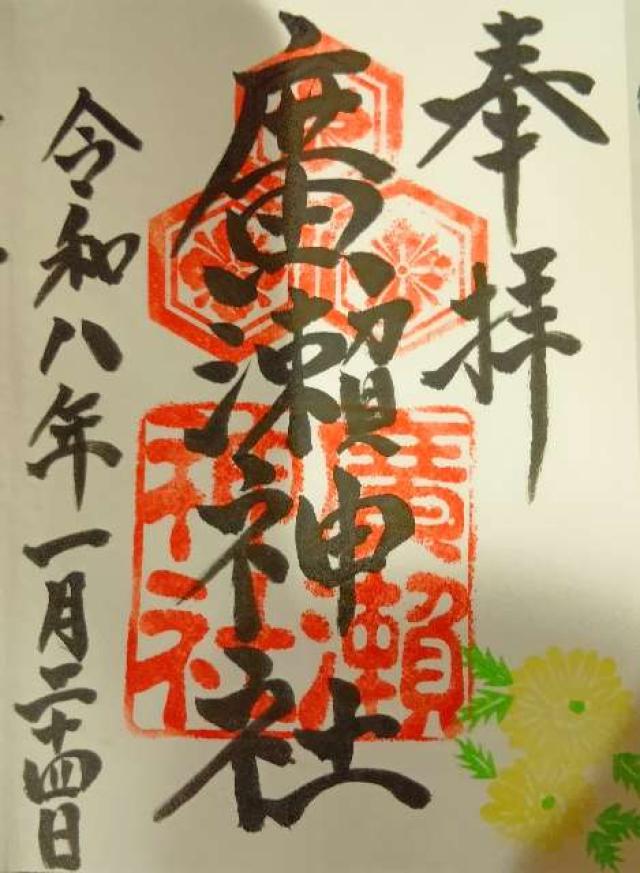 奉拝
廣瀬神社
廣瀬神社
令和八年一月二十四日